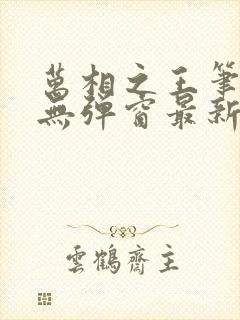 萬相之王筆
無彈窗最新
雲鶴齋主